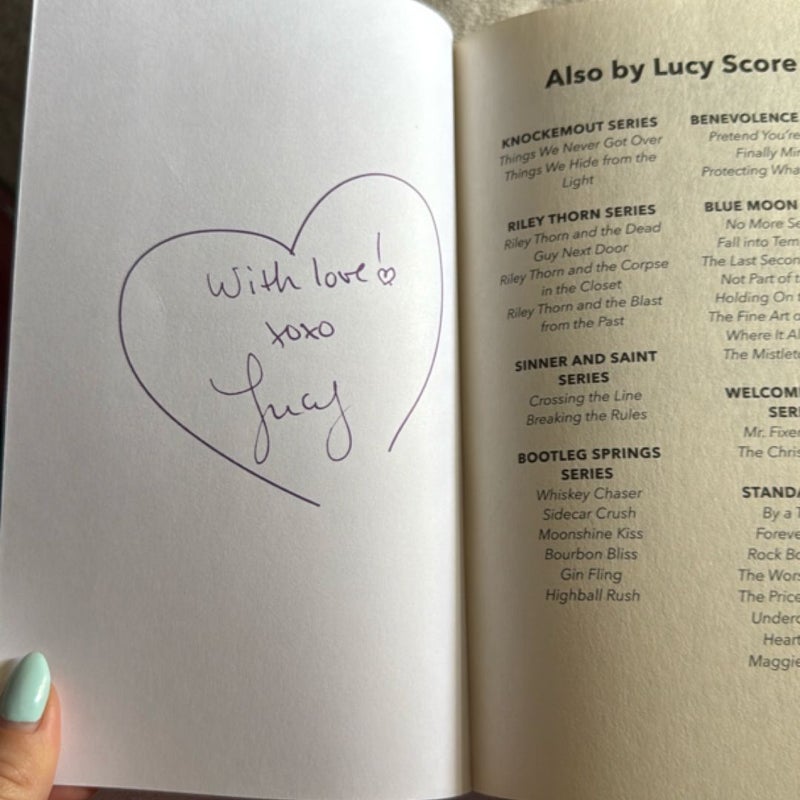 With love!
xoxo
Lucy
Also by Lucy Score
KNOCKEMOUT SERIES
Things We Never Got Over
Things We Hide from the
Light
RILEY THORN SERIES
Riley Thorn and the Dead
Guy Next Door
Riley Thorn and the Corpse
in the Closet
Riley Thorn and the Blast
from the Past
SINNER AND SAINT
SERIES
Crossing the Line
Breaking the Rules
BOOTLEG SPRINGS
SERIES
Whiskey Chaser
Sidecar Crush
Moonshine Kiss
Bourbon Bliss
Gin Fling
Highball Rush
BENEVOLENCE
Pretend You're
Finally
Protecting
BLUE MOON
No More
Fall into
The Last
Not Part of
Holding On
The Fine Art
Where It
The
Mr.
The
By a
Rock
The
The Price
Maggie